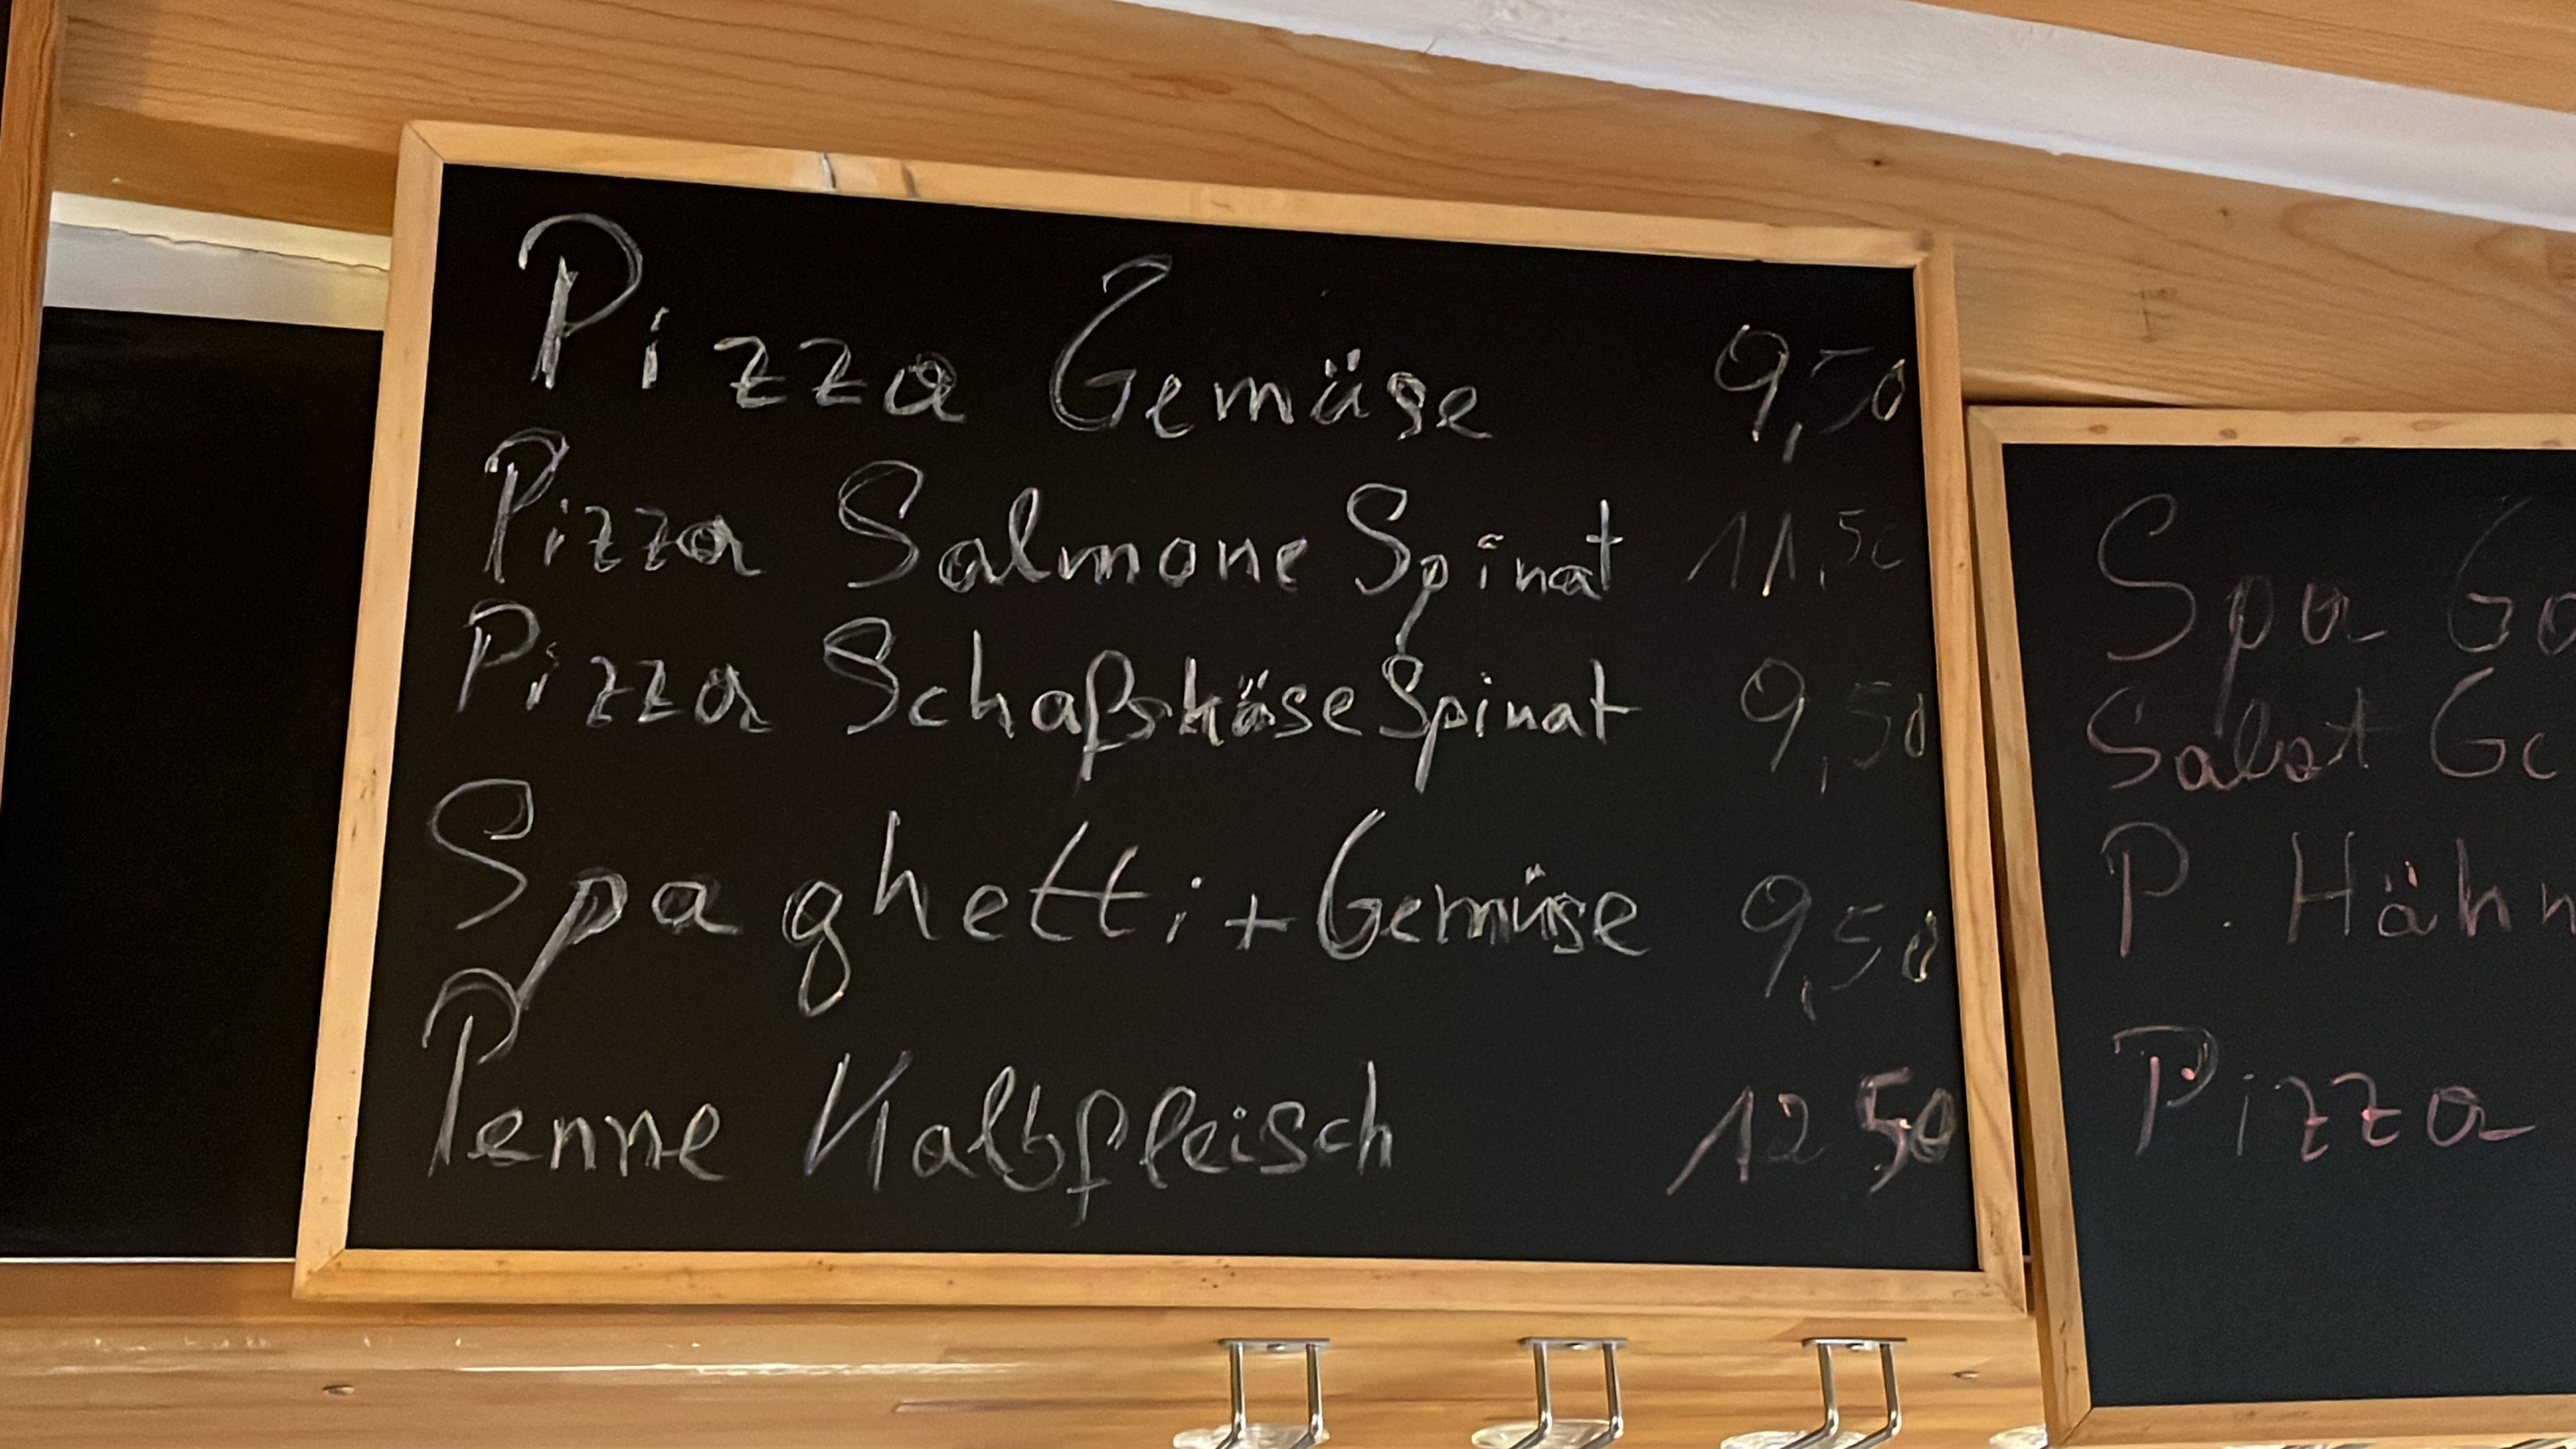 Pizza Gemüse 9,50
Pizza Salmone Spinat 11,50
Pizza Schafskäse Spinat 9,50
Spaghetti + Gemüse 9,50
Penne Kalbfleisch 12 50
Spa
Salat
P. Hähn
Pizza